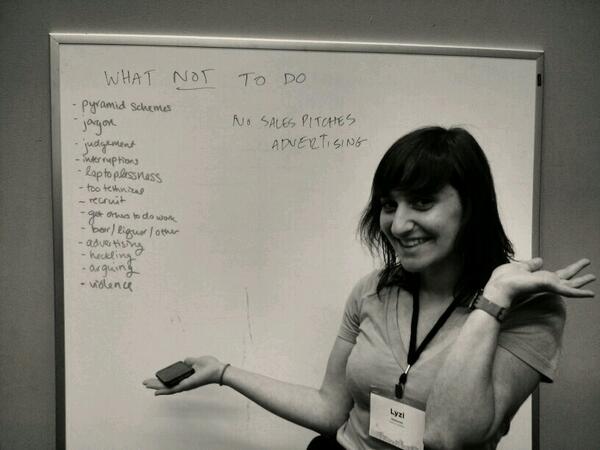 WHAT NOT TO DO
- pyramid schemes
- jargon
- judgement
- interruptions
- laptoplessness
- too technical
- recruit
- get others to do work
- beer/liquor/other
- advertising
- heckling
- arguing
- violence
NO SALES PITCHES
ADVERTISING
Lyzi